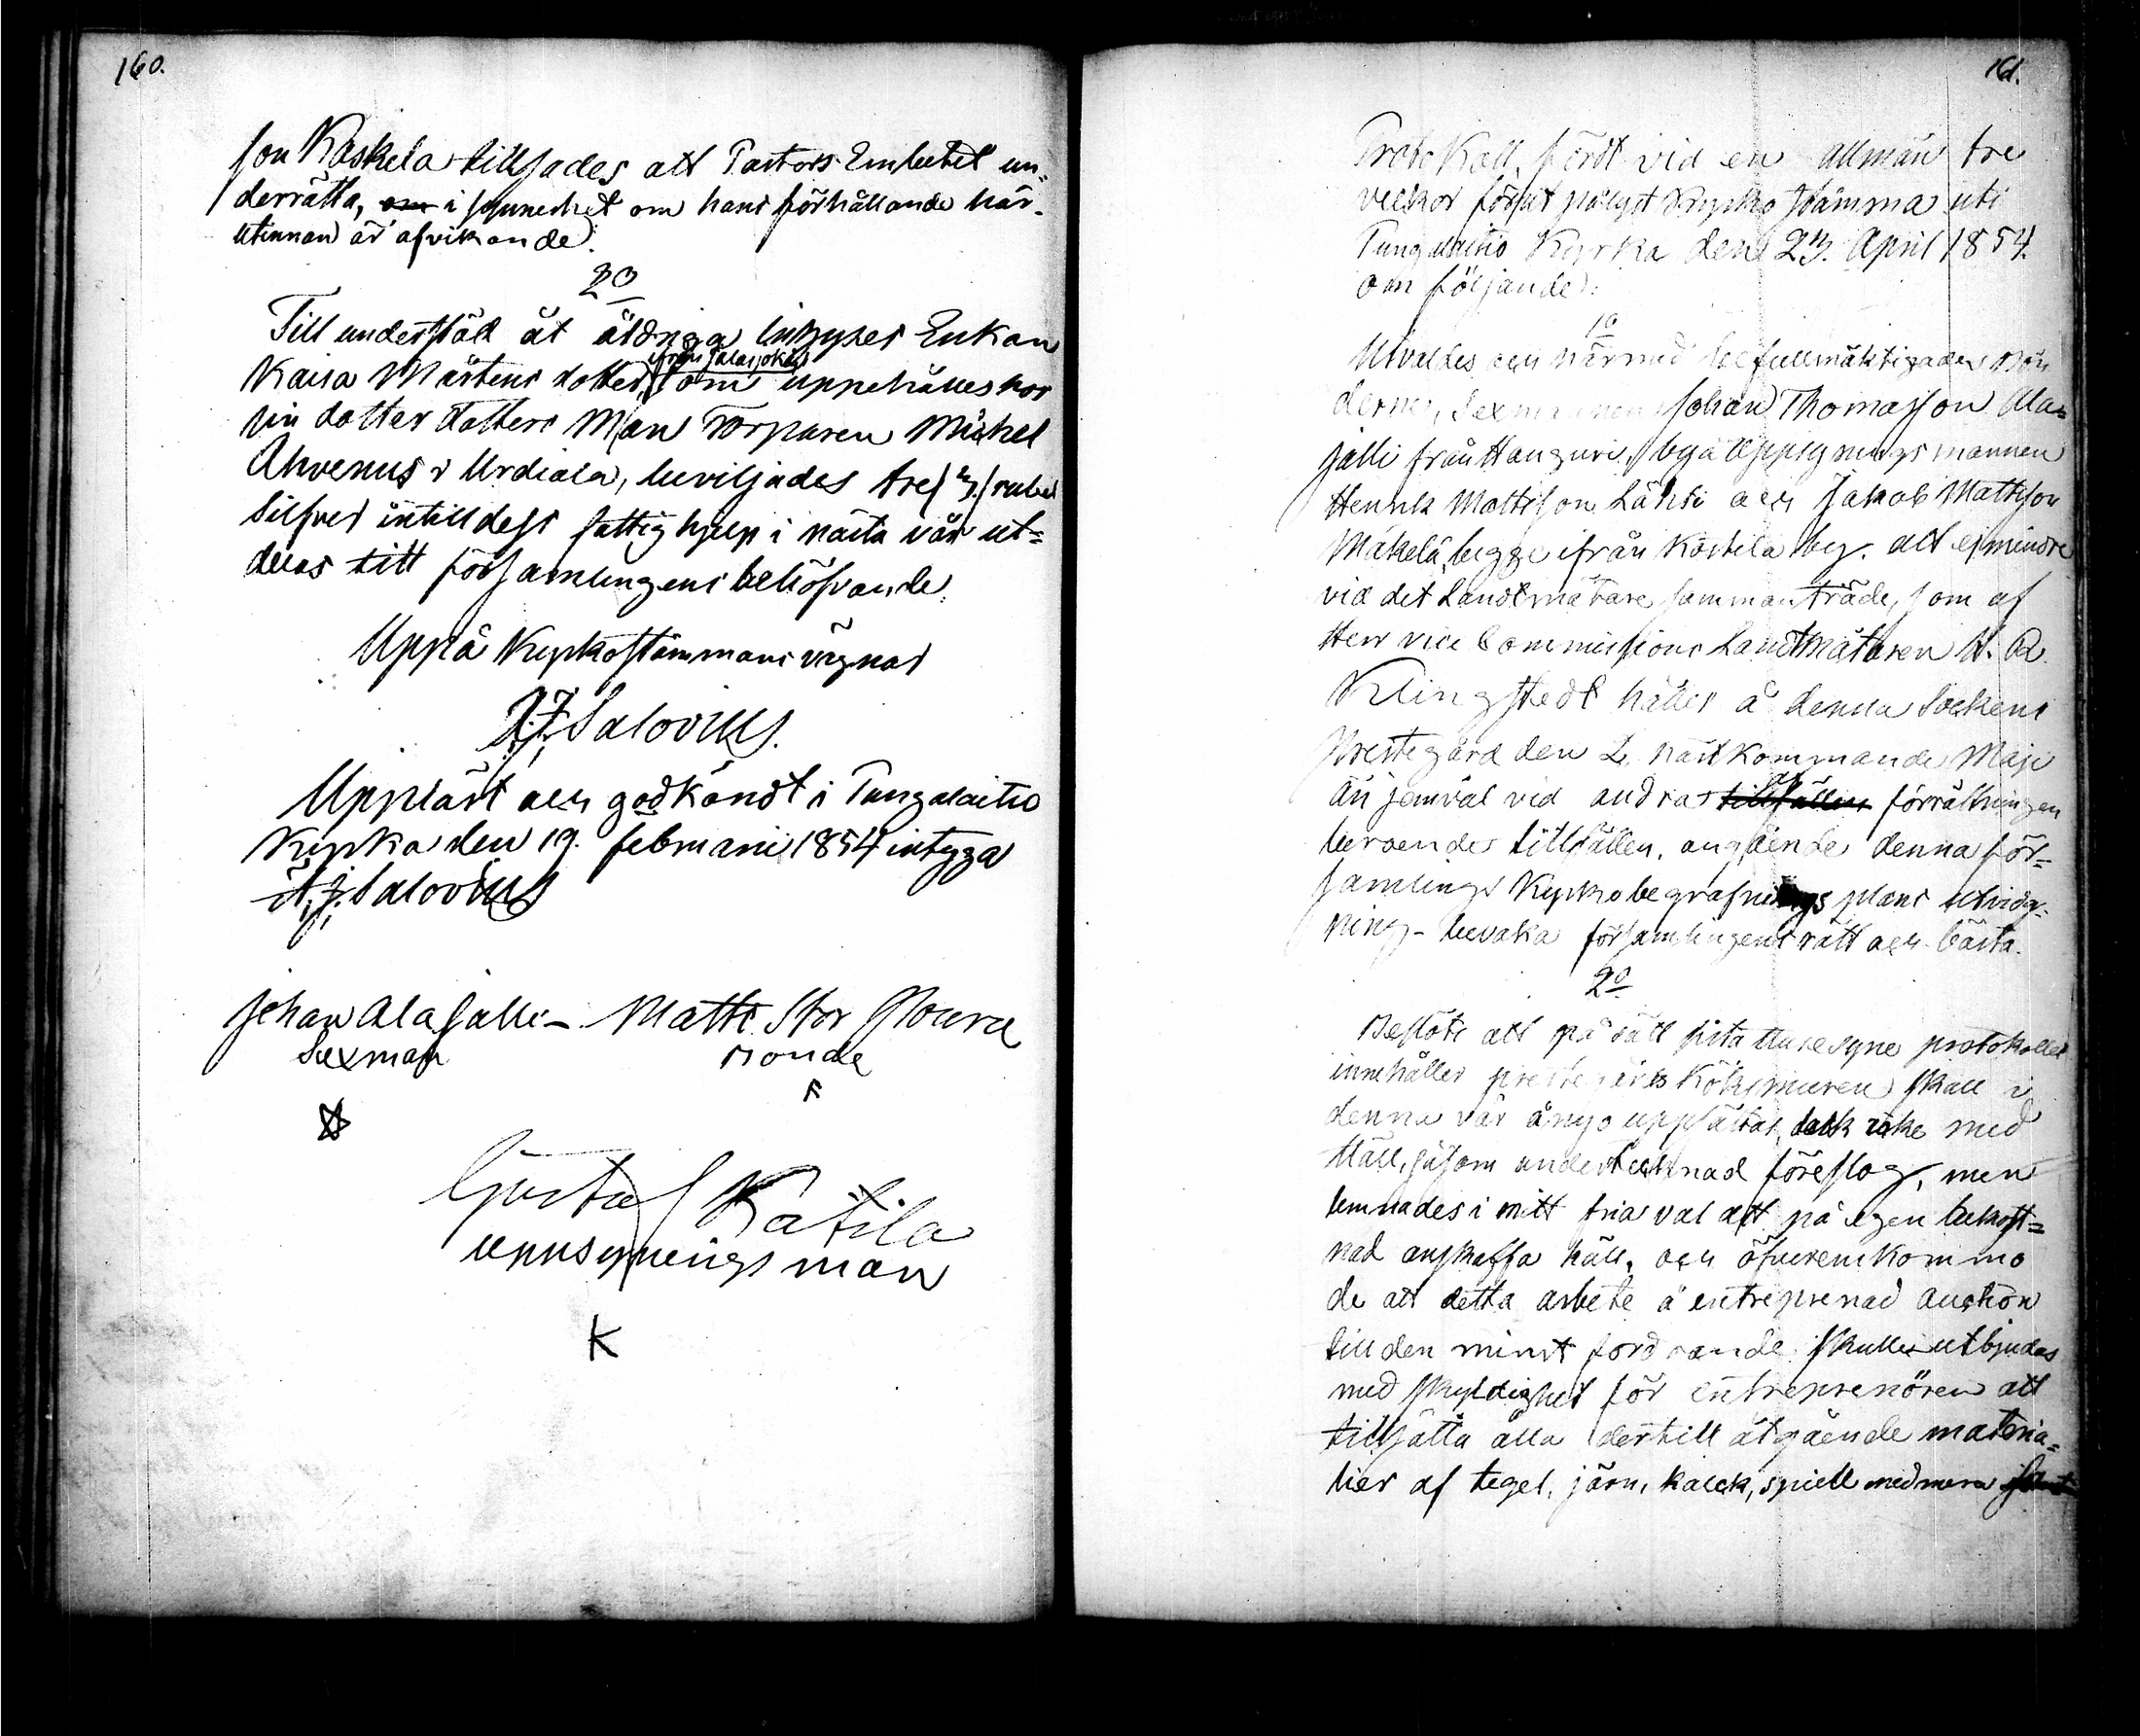 160.
son Kaskela tillsades att Pastors Embetet un-
derrätta, om i synnerhet om hans förhållande här-
utinnan är afvikande.
20
Till understöd åt åldriga Enkan
ifrån Jalasjoki
Kaisa Mårtens dotter, som uppehålles hos
sin dotter dotters Man Torparen Michel
Ahvenus i Urdiala, beviljades tre (3.) rubel
Silfver intilldess fattighjelp i nästa vår ut-
delas till församlingens behöfvande.
Uppå Kyrkostämmans vägnar
A.J. Salovius.
Uppläst och godkändt i Pungalaitio
Kyrka den 19. februarii 1854 intyga
A.J. Salovius
Johan Alajalli - Matti Stor
Sexman Bonde
Gustaf Katila
uppsynings man
K
161.
Protokoll, fördt vid en allmän tre
veckor förut pålyst Kyrko stämma uti
Pungalaitio Kyrka den 23. April 1854.
om följande:
10
Utvaldes och härmed befullmäktigades Bön
derne, Sexmannen Johan Thomasson Ala-
jalli från by Uppsyningsmannen
Henrik Mattsson Lähti och Jakob Mattsson
Mäkelä, begge ifrån Kostila by. att ej mindre
vid det Landtmätare sammanträde, som af
Herr vice Commissions Landtmätaren
Klingstedt hålles å denna Sockens
Prestegård den 2. nästkommande Maji
än jemväl vid andra tillfällen af förrättningen
beroende tillfällen, angående denna för-
samlings Kyrkobegrafnings plans utvidg-
ning - bevaka församlingens rätt och bästa.
20
Beslöts att på sätt sista Husesyne protokollet
innehåller prestegårds Köksmuren skall i
denna vår ånyo uppsättas, med
Häll, såsom undertecknad föreslog, men
lemnades i mitt fria val att på egen bekost-
nad anskaffa häll, och öfverenskommo
de att detta arbete å entreprenad auction
till den minst fordrande skulle utbjudas
med skyldighet för entreprenören att
tillsätta alla dertill åtgående materia-
lier af tegel, järn, kalck, spiell med mera